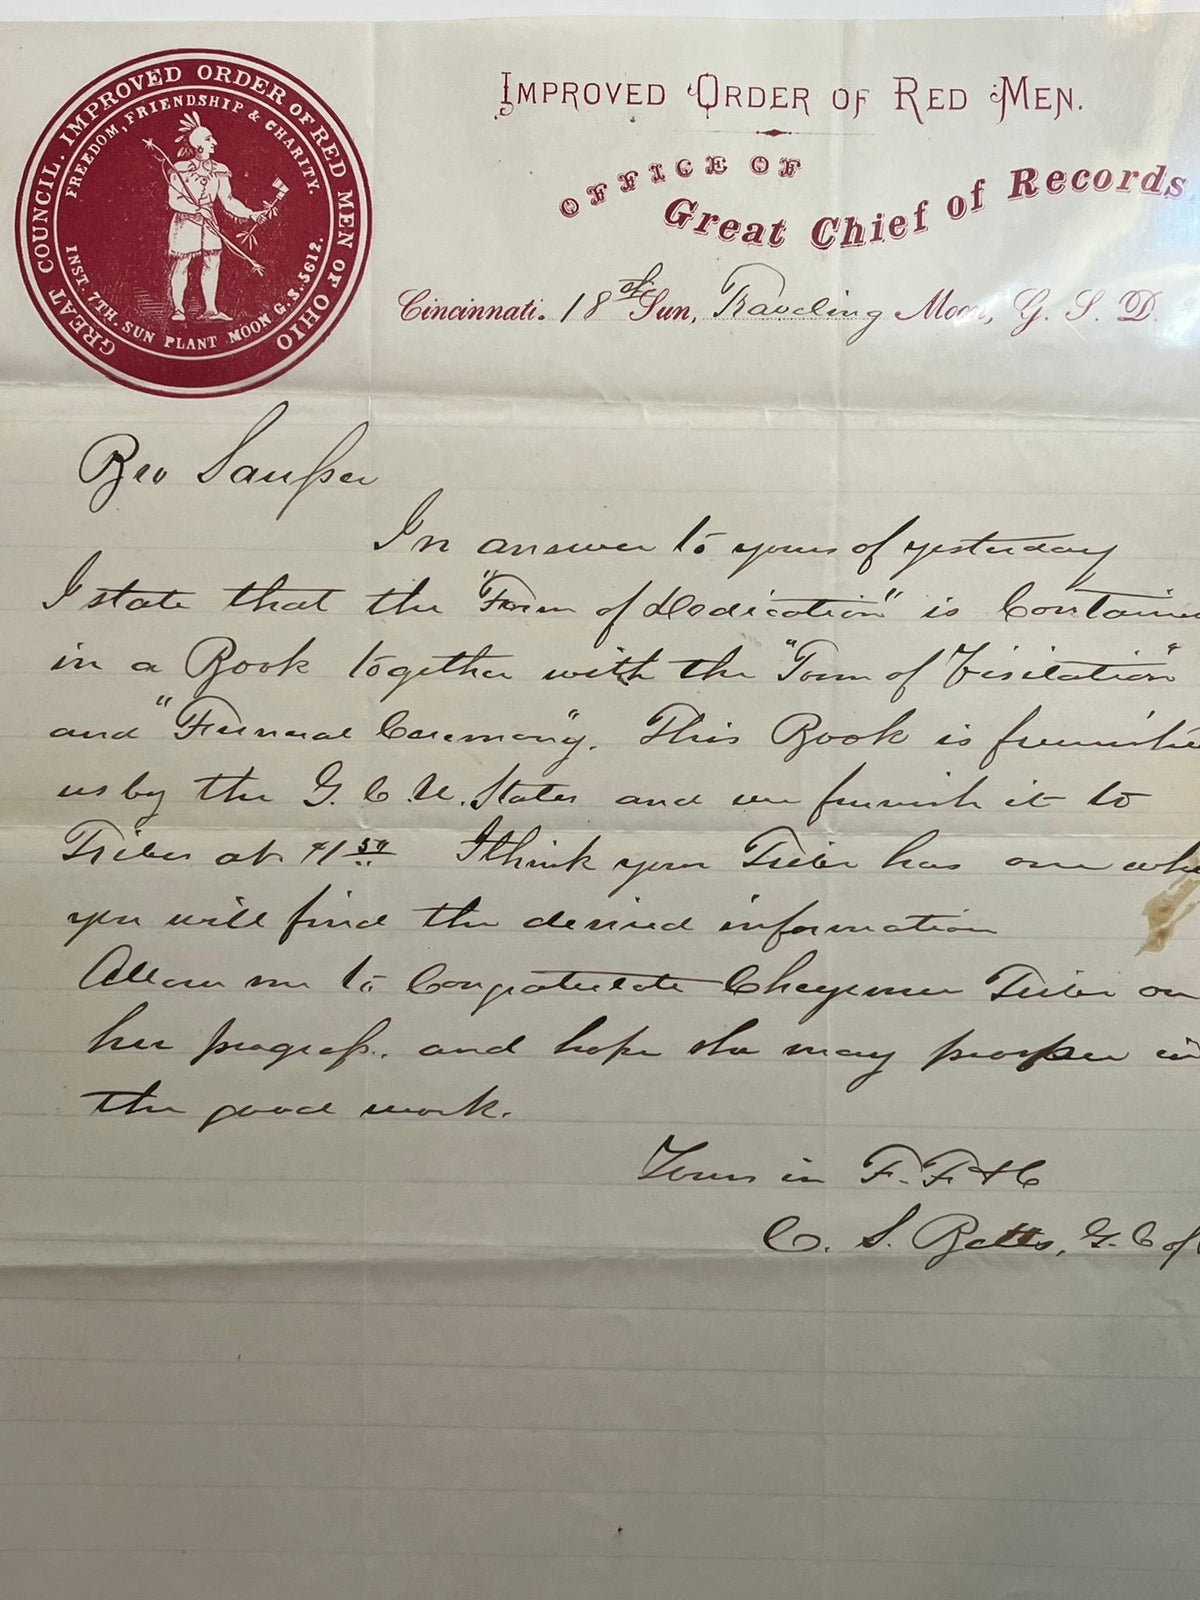 GREAT COUNCIL. IMPROVED ORDER OF RED MEN OF OHIO
FREEDOM, FRIENDSHIP & CHARITY.
INST. 7TH. SUN PLANT MOON G.S. 5612.
IMPROVED ORDER OF RED MEN.
OFFICE OF
Great Chief of Records
Cincinnati. 18th Sun, Traveling Moon, G. S. D.
Bro
In answer to yours of yesterday
I state that the "Form of Dedication" is
in a Book together with the "Form of Visitation"
and "Funeral Ceremony". This Book is
us by the G. C. U. States and we furnish it to
Tribes at $1 50 I think your Tribe has one
you will find the desired information
Allow me to Congratulate Cheyenne Tribe on
her progress. and hope she may prosper in
the good work.
Yours in F. F & C
C. S. Betts, G. C of